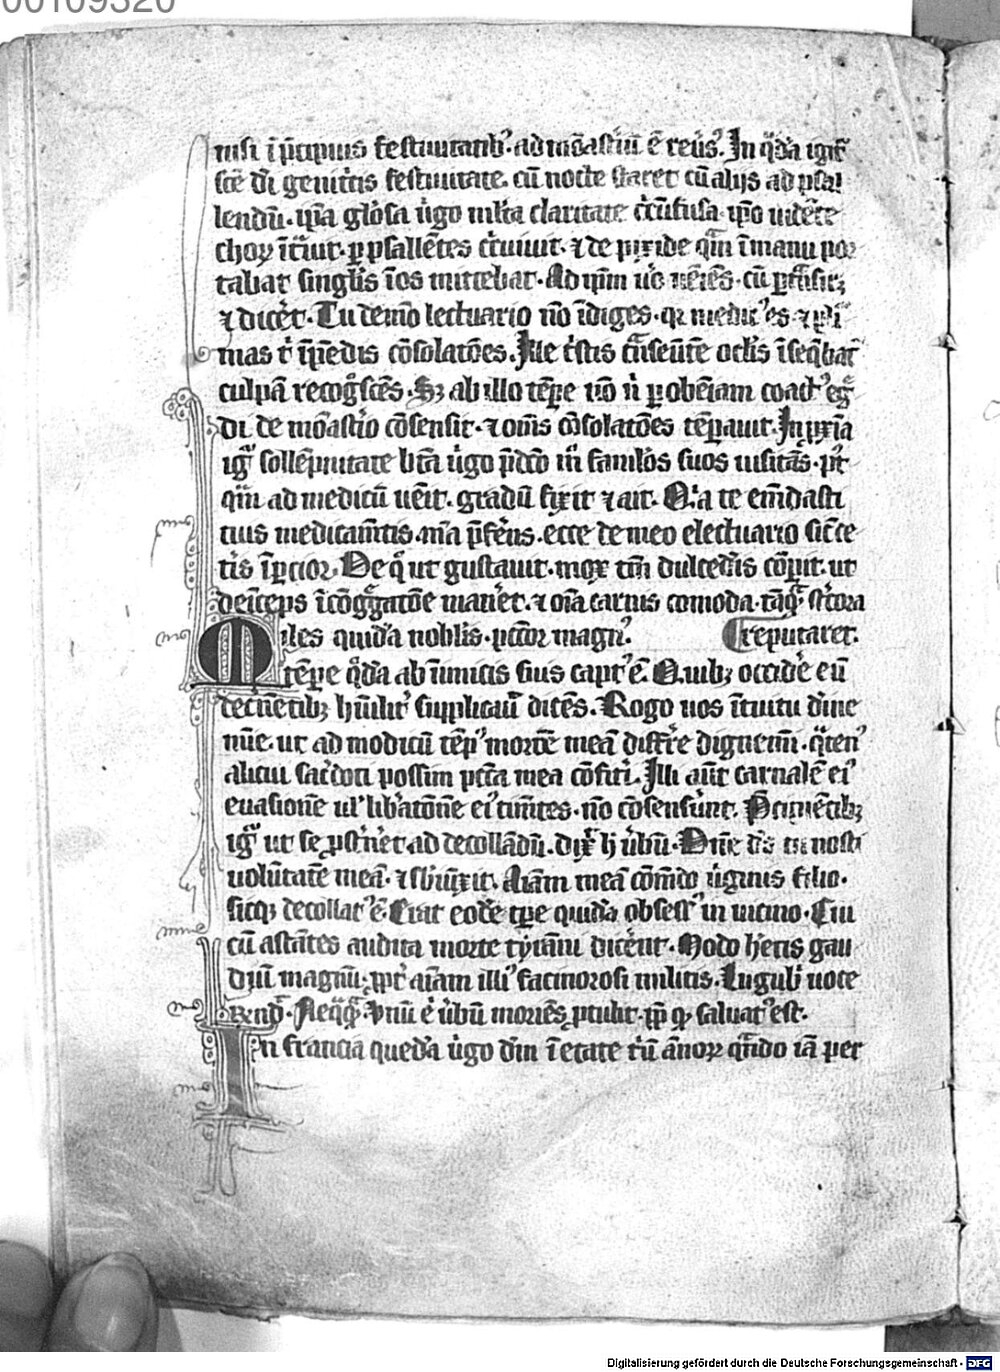 00109320
nisi ī p̄cipuis festiuitatib᷒ · ad mōastiū ē reūs᷒. In q̄dā igit᷒
scē dī genit͛cis festiuitate · cū nocte staret cū alijs ad psal
lendū · ip̄a glo͛sa ūgo mlta claritate · ip̄o uidēte
choꝝ īt͛uit · ꝑ psallētes · ⁊ de pixide quā ī manu por
tabat singlis īos mittebat · Ad ip̄m
⁊ dice͛t · Tu de meo lectuario nō īdiges · qr medic᷒ es ⁊
mas t͛ īpēdis cōsolatōes. Ille t͛stis oclis īseq̄bat᷒
culpā recog̊scēs · Sꝫ ab illo tēpe nō ꝑ obēiam coact᷒
di de mōastio cōsensit · ⁊ oms cōsolatōes tēpauit · In pxia
igit᷒ sollēpnitate btā ūgo p̄dco m famlos suos uisitās ·
qm ad medicū uēit · gradū fixit ⁊ ait · Q᷒a te emdasti
tuis medicam̄tis · m̄a p̄fe͛ns · ecce de meo electuario
īpcior · De q̊ ut gustauit · mox tm̄ dulced͛is cōpit · ut
deīceps ī cōg͛gatōe maner͛et · ⁊ oīa carnis comoda · tāq̄
Miles quidā nobilis · pccōr magn᷒. reputaret.
tēpe q̄dā ab īimicis suis capt᷒ ē. Quibꝫ occide͛ eū
decne͛tibꝫ hūilit͛ supplicauit dicēs. Rogo uos ītuitu d͛ine
mīe · ut ad modicū tēp᷒ mortē meā diffr͛e dignemi · q̄ten᷒
alicui sac͛doti possim pccā mea cōfit͛i. Illi aūt carnalē ei᷒
euasionē ul᷒ lib͛atōnē ei᷒ timētes · nō cōsense͛unt. P̄cipientibꝫ
igit᷒ ut se pst͛net͛ ad decollādū · dix͛ h u͛bū · Dn̄e ds tu nosti
uolūtatē meā · ⁊ sbiūxit · Aīam meā cōmēdo u͛ginis filio.
sicqꝫ decollat᷒ ē. Erat eodē tpe quidā obsess᷒ in uicino · Cui
cū astātes audita morte tyrāni dice͛nt · Modo h͛etis gau
diū magnū · ꝓpt͛ aīam illi᷒ facinorosi militis. Lugub͛ uoce
rn̄d͛ · Neq̄q̄ Vnū ē u͛bū moriēs ptulit · ꝓpt͛ qd saluat᷒ est.
In francia quedā u͛go dīm ī etate t͛ū annoꝝ q̄ndo iā per
Digitalisierung gefördert durch die Deutsche Forschungsgemeinschaft - DFG